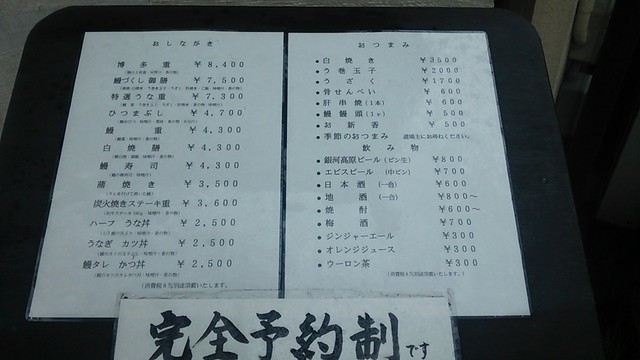 おしながき
博多重 ￥8,400
鰻づくし御膳 ￥7,500
特選うな重 ￥7,300
ひつまぶし ￥4,700
鰻重 ￥4,300
白焼膳 ￥4,300
鰻寿司 ￥4,300
蒲焼き ￥3,500
炭火焼きステーキ重 ￥3,600
ハーフ うな丼 ￥2,500
うなぎ カツ丼 ￥2,500
鰻タレ かつ丼 ￥2,500
(消費税8%別途頂戴いたします。)
おつまみ
●白焼き ￥3500
●う巻玉子 ￥2000
●うざく ￥1700
●骨せんべい ￥600
●肝串焼(1本) ￥600
●鰻饅頭(1ヶ) ￥500
●お新香 ￥500
●季節のおつまみ 道場主にお尋ねください。
飲み物
●銀河高原ビール(ビン生) ￥800
●エビスビール (中ビン) ￥700
●日本酒(一合) ￥600
●地酒(一合) ￥800～
●焼酎 ￥600～
●梅酒 ￥700
●ジンジャーエール ￥300
●オレンジジュース ￥300
●ウーロン茶 ￥300
(消費税8%別途頂戴いたします。)
完全予約制です